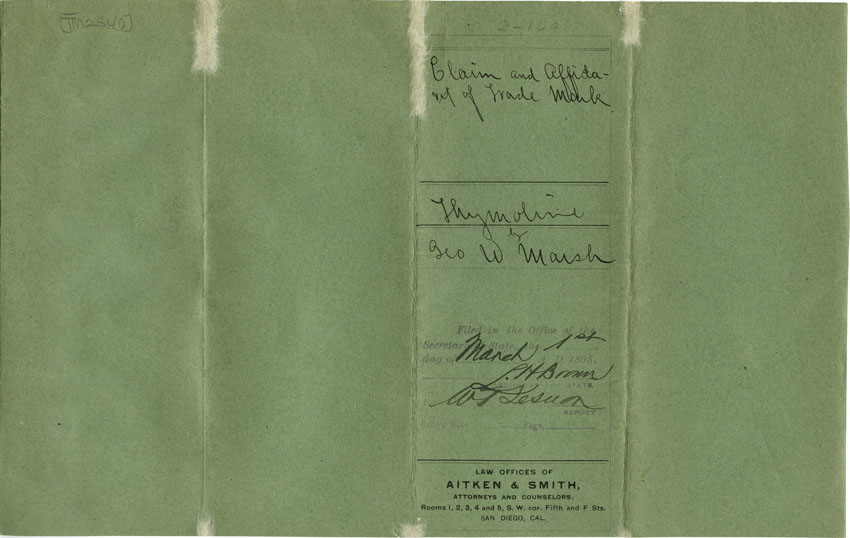 [TM2540]
3-164
Claim and Affida-
vit of Trade Mark
Thymoline
by
Geo W Marsh
Filed in the Office of the
Secretary of State, the
March 1st
day of D 1895.
L. H. Brown
STATE.
DEPUTY
Page,
LAW OFFICES OF
AITKEN & SMITH,
ATTORNEYS AND COUNSELORS,
Rooms 1, 2, 3, 4 and 5, S. W. cor. Fifth and F Sts.
SAN DIEGO, CAL.